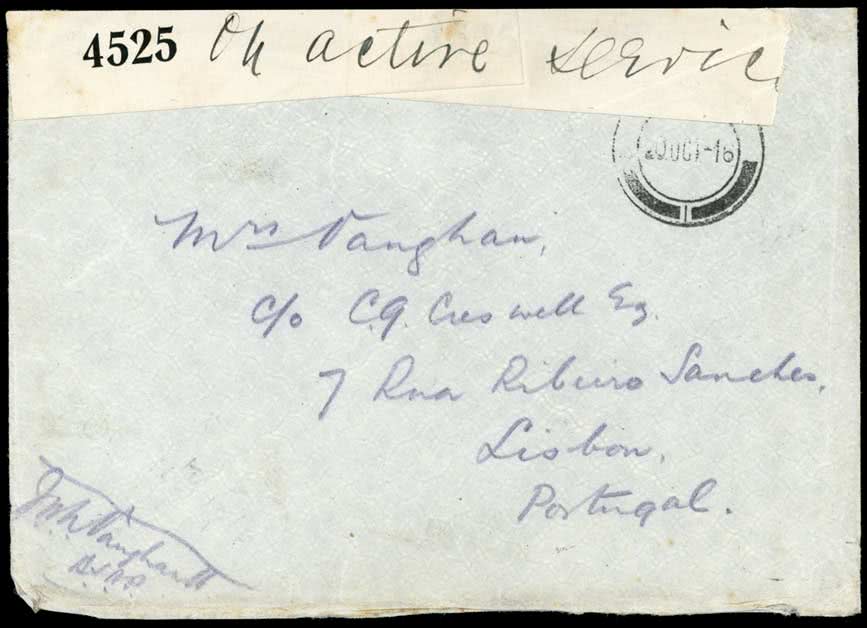 4525 On active service
20 OCT-16
Mrs Vaughan,
c/o C.G. Creswell Esq.
7 Rua Ribeiro Sanches,
Lisbon,
Portugal.
Vaughan Lt